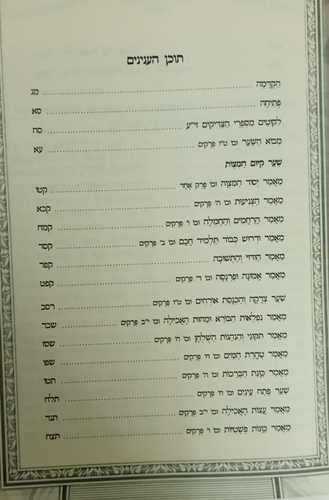 תוכן הענינים
הקדמה מג
פתיחה סא
לקוטים מספרי הצדיקים זי"ע סח
מבוא השער ובו ט"ו פרקים עא
שער קיום המצות
מאמר יסוד המצוה ובו פרק אחד קטו
מאמר הצניעות ובו ה' פרקים קכא
מאמר הרחמים והחמלה ובו ו' פרקים קמח
מאמר ודרוש כבוד תלמיד חכם ובו ב' פרקים קסד
מאמר הודוי והתשובה קפר
מאמר אמונה ופרנסה ובו ד' פרקים קפט
שער צדקה והכנסת אורחים ובו ט"ז פרקים רסב
מאמר נפלאות הבורא ומהות האכילה ובו י"ב פרקים שכד
מאמר תקוני והנהגת השלחן ובו ח' פרקים שסז
מאמר טהרת המים ובו ח' פרקים שפו
מאמר כונת הברכות ובו ה' פרקים תטו
שער פתח עינים ובו ח' פרקים תלח
מאמר עצות האכילה ובו י"ב פרקים תנד
מאמר כונות פשטיות ובו ו' פרקים תצח